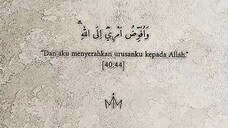 وَأُفَوِّضُ أَمْرِيٓ إِلَى اللَّهِ ۚ
"Dan aku menyerahkan urusanku kepada Allah."
[40:44]